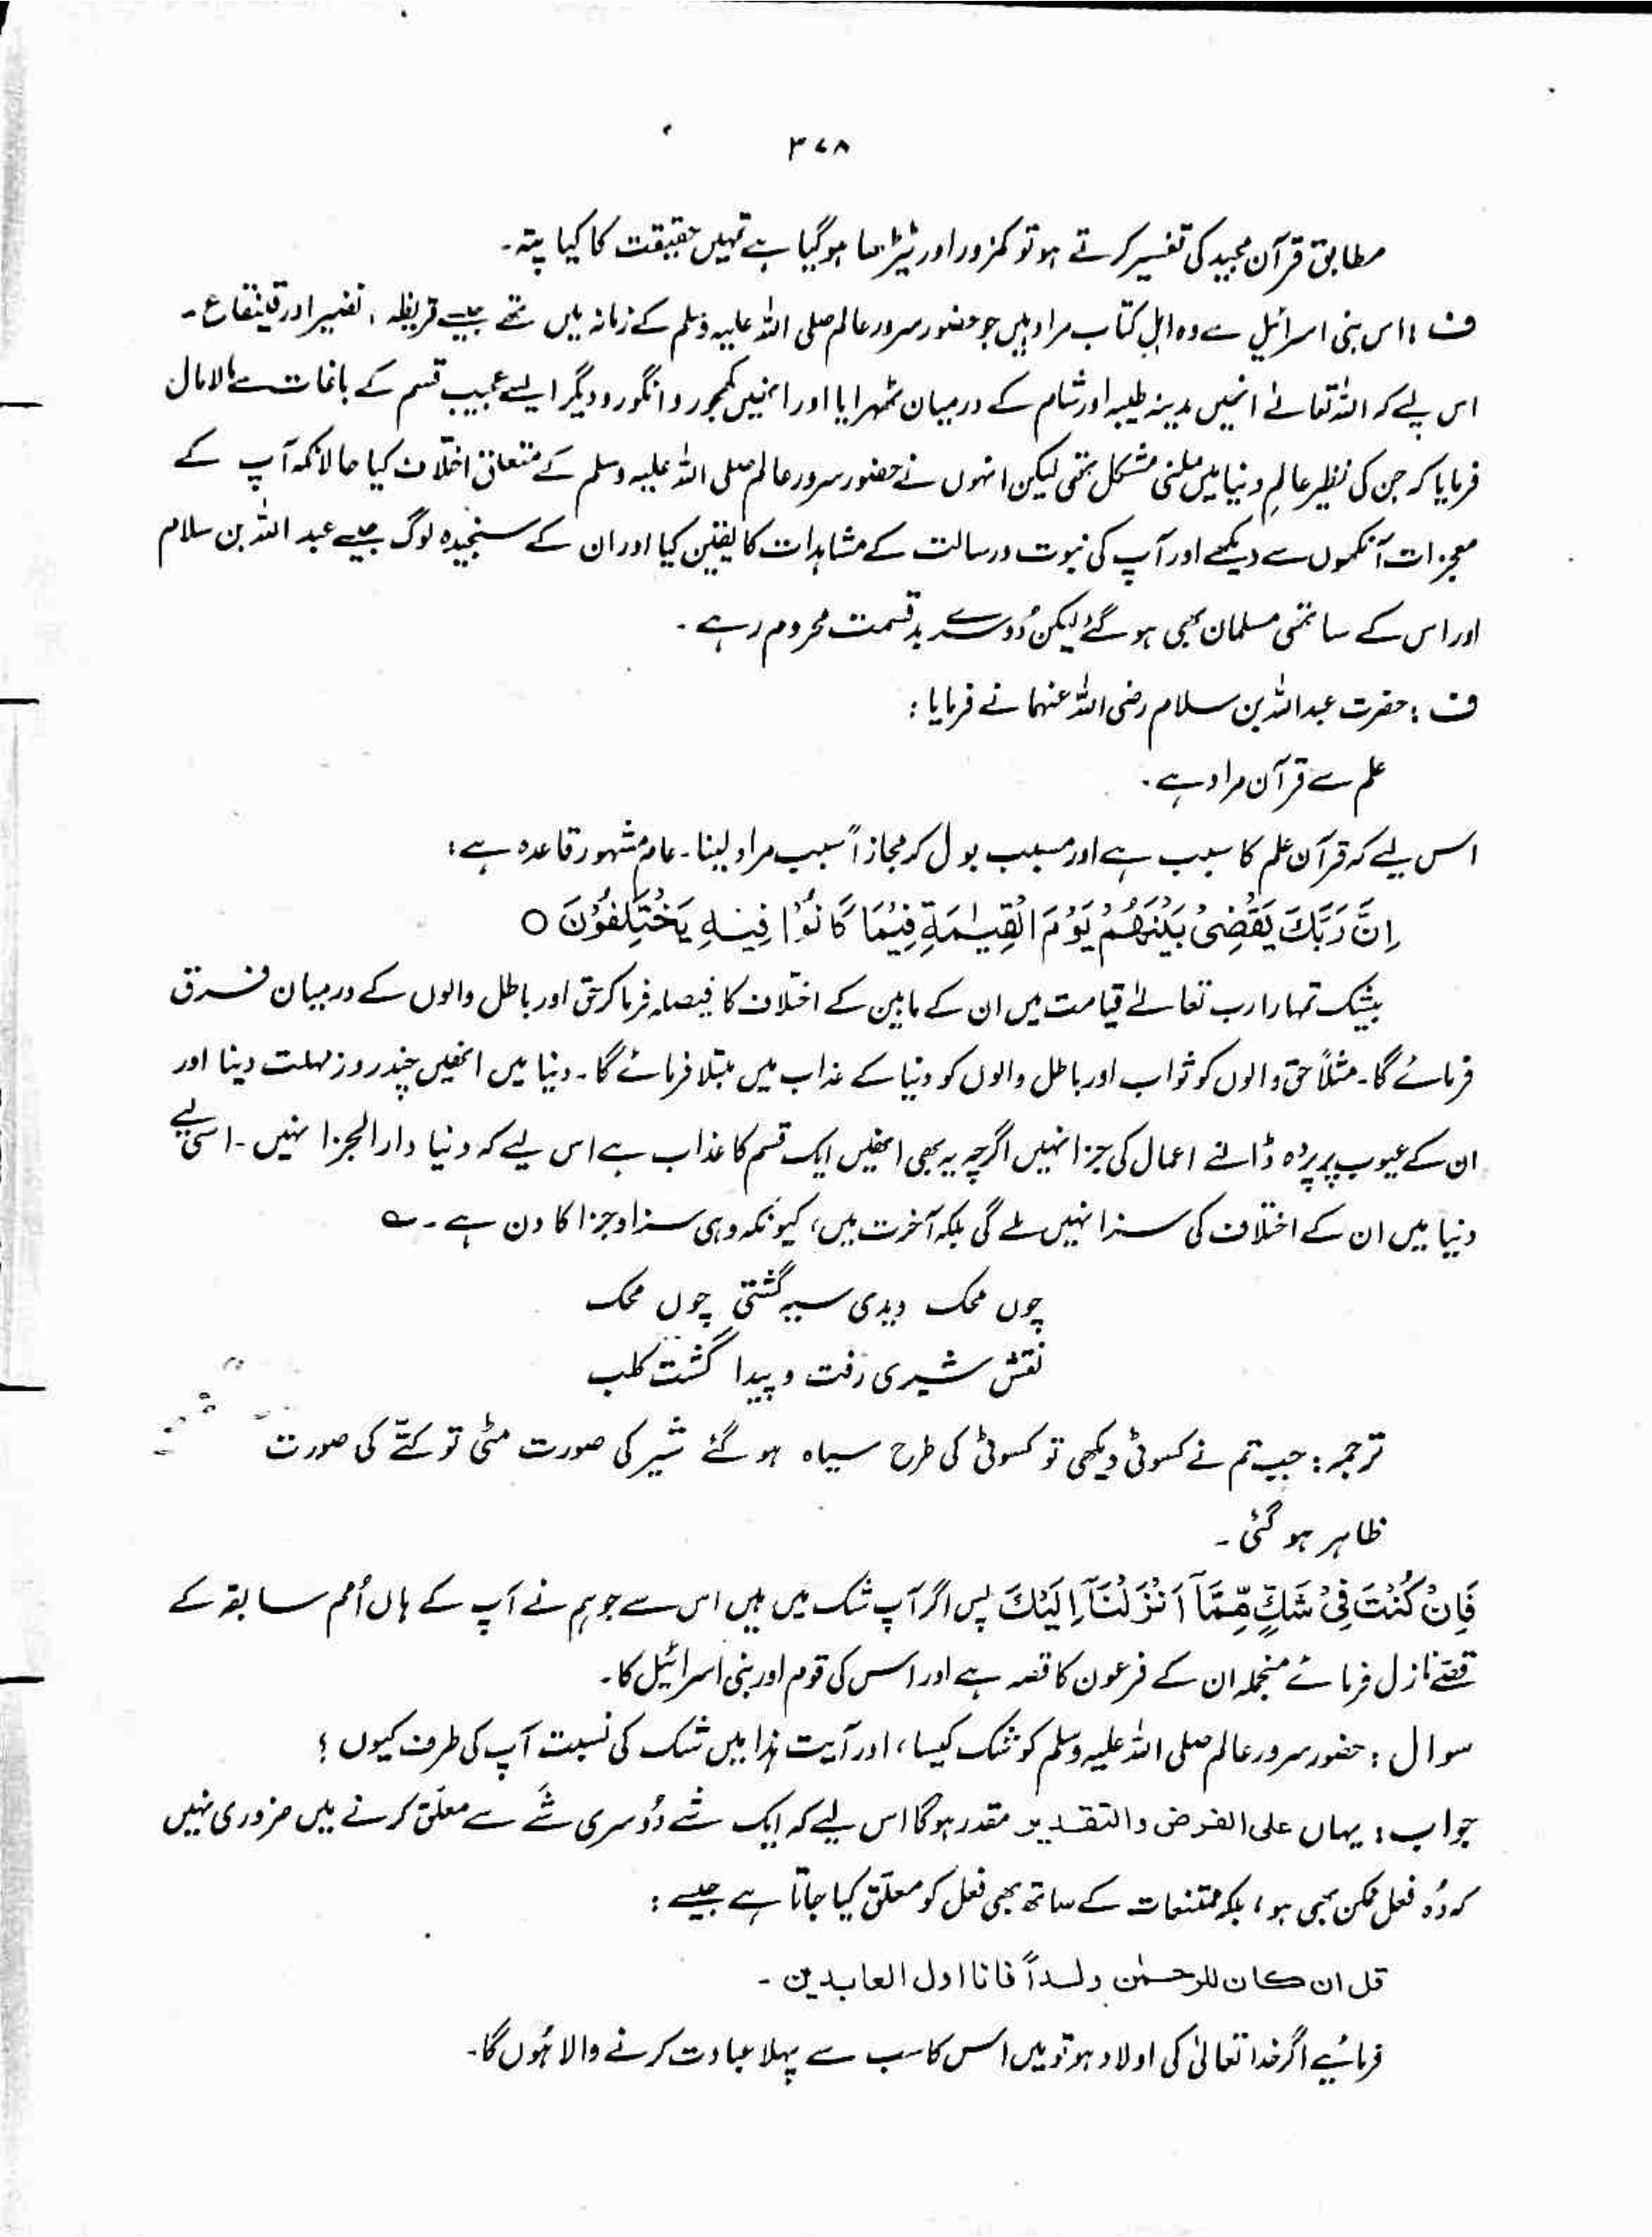 ۳۷۸
مطابق قرآن مجید کی تفسیر کرتے ہو تو کمزور اور ٹیڑھا ہو گیا ہے تمہیں حقیقت کا کیا پتہ۔
ف : اس بنی اسرائیل سے وہ اہلِ کتاب مراد ہیں جو حضور سرور عالم صلی اللہ علیہ وسلم کے زمانہ میں تھے جیسے قریظہ ، نضیر اور قینقاع۔
اس لیے کہ اللہ تعالےٰ انھیں مدینہ طیبہ اور شام کے درمیان ٹھہرایا اور انھیں کھجور و انگور و دیگر ایسے عجیب قسم کے باغات سے مالا مال
فرمایا کہ جن کی نظیر عالمِ دنیا میں ملنی مشکل تھی لیکن انہوں نے حضور سرور عالم صلی اللہ علیہ وسلم کے متعلق اختلاف کیا حالانکہ آپ کے
معجزات آنکھوں سے دیکھے اور آپ کی نبوت و رسالت کے مشاہدات کا یقین کیا اور ان کے سنجیدہ لوگ جیسے عبد اللہ بن سلام
اور اس کے ساتھی مسلمان بھی ہو گئے لیکن دُوسرے بدقسمت محروم رہے ۔
ف : حضرت عبداللہ بن سلام رضی اللہ عنہما نے فرمایا :
علم سے قرآن مراد ہے ۔
اس لیے کہ قرآن علم کا سبب ہے اور مسبب بول کر مجازاً سبب مراد لینا۔ عام مشہور قاعدہ ہے :
اِنَّ رَبَّكَ يَقْضِىْ بَيْنَهُمْ يَوْمَ الْقِيٰمَةِ فِيْمَا كَانُوْا فِيْهِ يَخْتَلِفُوْنَ ○
بیشک تمہارا رب تعالےٰ قیامت میں ان کے مابین کے اختلاف کا فیصلہ فرما کر حق اور باطل والوں کے درمیان فرق
فرمائے گا۔ مثلاً حق والوں کو ثواب اور باطل والوں کو دنیا کے عذاب میں مبتلا فرمائے گا۔ دنیا میں انھیں چند روز مہلت دینا اور
ان کے عیوب پر پردہ ڈالنے اعمال کی جزا نہیں اگرچہ یہ بھی انھیں ایک قسم کا عذاب ہے اس لیے کہ دنیا دار الجزا نہیں ۔ اسی لیے
دنیا میں ان کے اختلاف کی سزا نہیں ملے گی بلکہ آخرت میں، کیونکہ وہی سزا و جزا کا دن ہے ۔ ؎
چوں محک دیدی سیہ گشتی چوں محک
نقش شیری رفت و پیدا گشت کلب
ترجمہ : جب تم نے کسوٹی دیکھی تو کسوٹی کی طرح سیاہ ہو گئے شیر کی صورت مٹی تو کتّے کی صورت
ظاہر ہو گئی ۔
فَاِنْ كُنْتَ فِىْ شَكٍّ مِّمَّآ اَنْزَلْنَآ اِلَيْكَ پس اگر آپ شک میں ہیں اس سے جو ہم نے آپ کے ہاں اُمم سابقہ کے
قصّے نازل فرمائے منجملہ ان کے فرعون کا قصہ ہے اور اس کی قوم اور بنی اسرائیل کا۔
سوال : حضور سرور عالم صلی اللہ علیہ وسلم کو شک کیسا ، اور آیت ہذا میں شک کی نسبت آپ کی طرف کیوں ؟
جواب : یہاں علی الفرض والتقدیر مقدر ہوگا اس لیے کہ ایک شے دُوسری شے سے معلّق کرنے میں ضروری نہیں
کہ وُہ فعل ممکن بھی ہو ، بلکہ ممتنعات کے ساتھ بھی فعل کو معلّق کیا جاتا ہے جیسے :
قل ان كان للرحمٰن ولداً فانا اول العابدين ۔
فرمائیے اگر خدا تعالیٰ کی اولاد ہو تو میں اس کا سب سے پہلا عبادت کرنے والا ہُوں گا۔